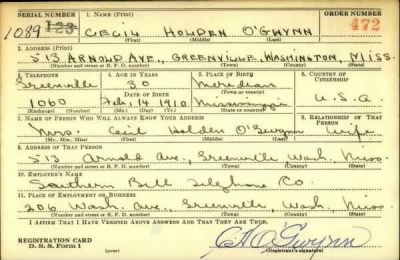 SERIAL NUMBER 1. NAME (Print) ORDER NUMBER
1089 123 CECIL HOLDEN O'GWYNN 472
(First) (Middle) (Last)
2. ADDRESS (Print)
513 ARNOLD AVE., GREENVILLE, WASHINGTON, MISS.
(Number and street or R. F. D. number) (Town) (County) (State)
3. TELEPHONE 4. AGE IN YEARS 5. PLACE OF BIRTH 6. COUNTRY OF CITIZENSHIP
Greenville 30 Meridian
DATE OF BIRTH (Town or county)
1060 Feb, 14 1910 Mississippi U.S.A.
(Exchange) (Number) (Mo.) (Day) (Yr.) (State or country)
7. NAME OF PERSON WHO WILL ALWAYS KNOW YOUR ADDRESS 8. RELATIONSHIP OF THAT PERSON
Mrs. Cecil Holden O'Gwynn Wife
(Mr., Mrs., Miss) (First) (Middle) (Last)
9. ADDRESS OF THAT PERSON
513 Arnold Ave., Greenville, Wash. Miss.
(Number and street or R. F. D. number) (Town) (County) (State)
10. EMPLOYER'S NAME
Southern Bell Telephone Co.
11. PLACE OF EMPLOYMENT OR BUSINESS
206 Wash. Ave., Greenville, Wash, Miss.
(Number and street or R. F. D. number) (Town) (County) (State)
I AFFIRM THAT I HAVE VERIFIED ABOVE ANSWERS AND THAT THEY ARE TRUE.
REGISTRATION CARD
D. S. S. Form 1 (over) (Registrant's signature)
C H O'Gwynn